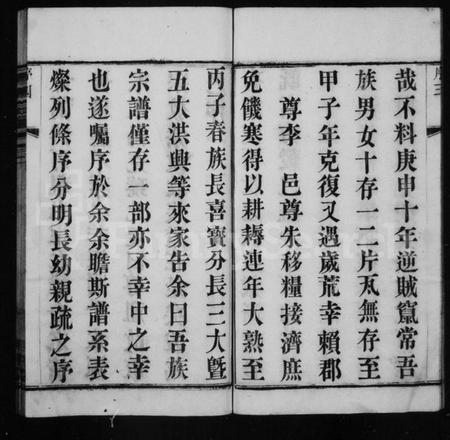 哉不料庚申十年逆賊竄常吾
族男女十存一二片瓦無存至
甲子年克復又遇歲荒幸賴郡
尊李 邑尊朱移糧接濟庶
免饑寒得以耕耨連年大熟至
丙子春族長喜寶分長三大暨
五大洪典等來家告余曰吾族
宗譜僅存一部亦不幸中之幸
也遂囑序於余余瞻斯譜系表
燦列條序分明長幼親疏之序